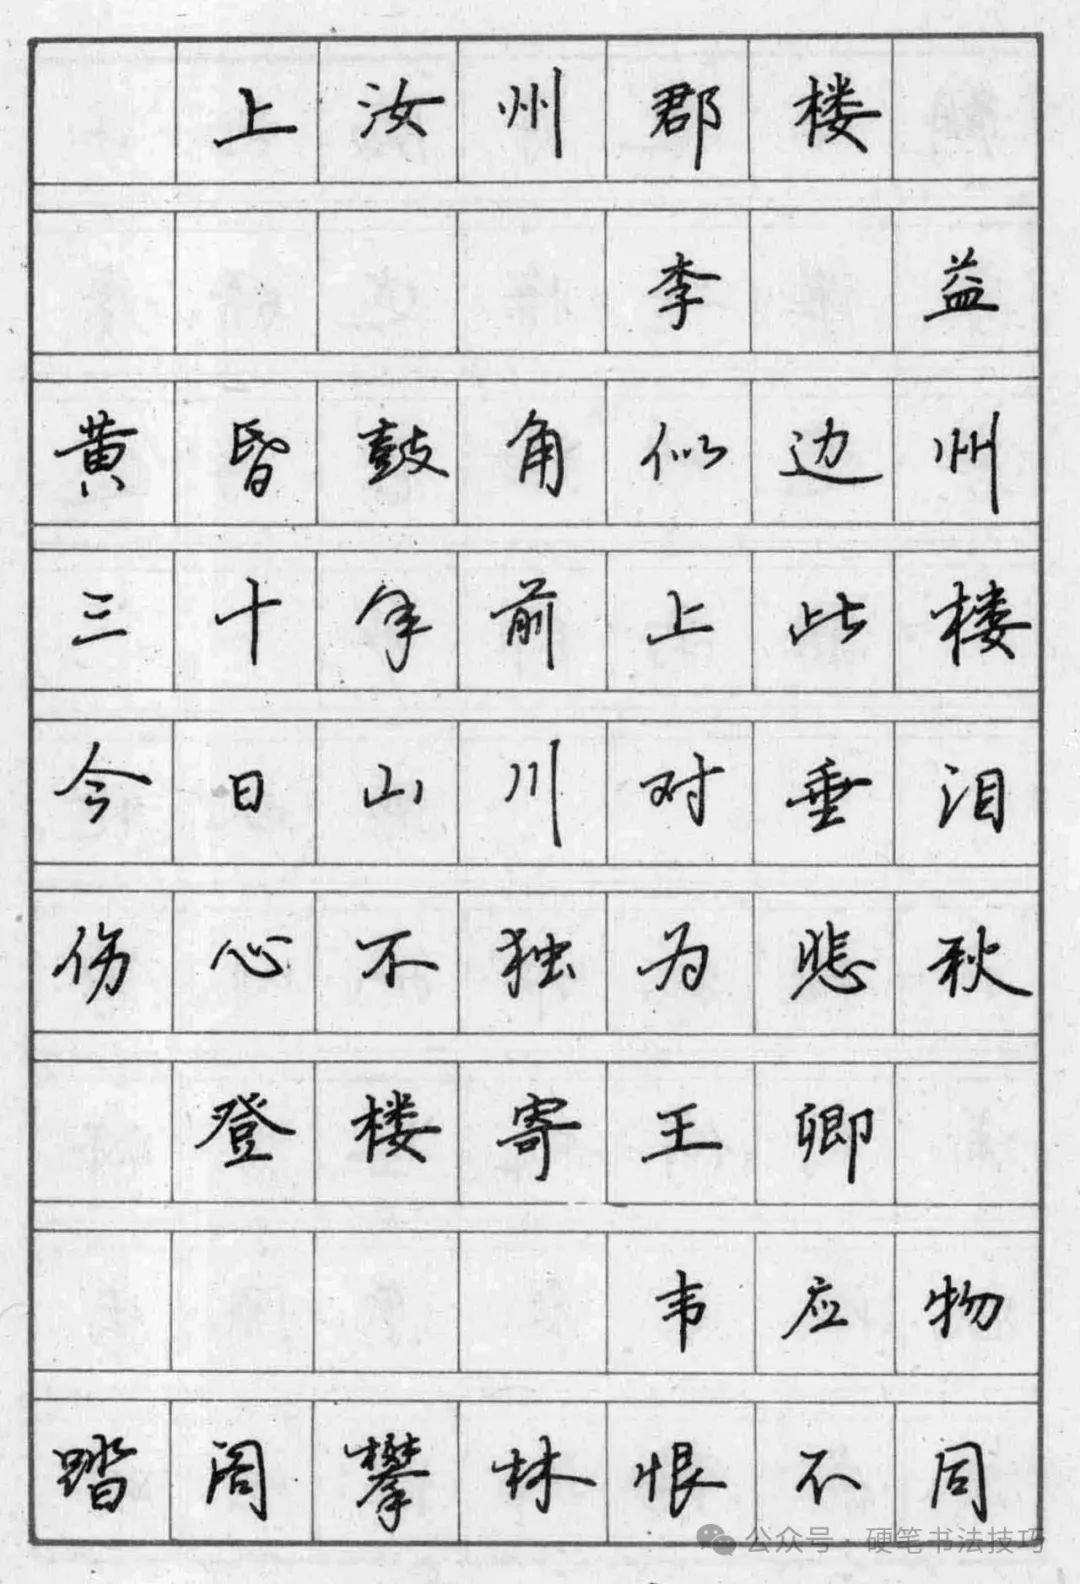 上汝州郡楼
李益
黄昏鼓角似边州
三十年前上此楼
今日山川对垂泪
伤心不独为悲秋
登楼寄王卿
韦应物
踏阁攀林恨不同
公众号·硬笔书法技巧